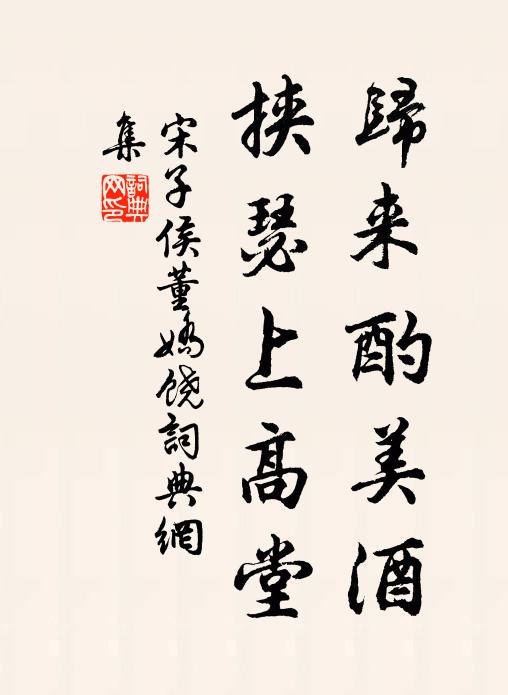 歸来酌美酒
挾瑟上高堂
宋子侯董嬌饒詞典網
集
詞典
网印